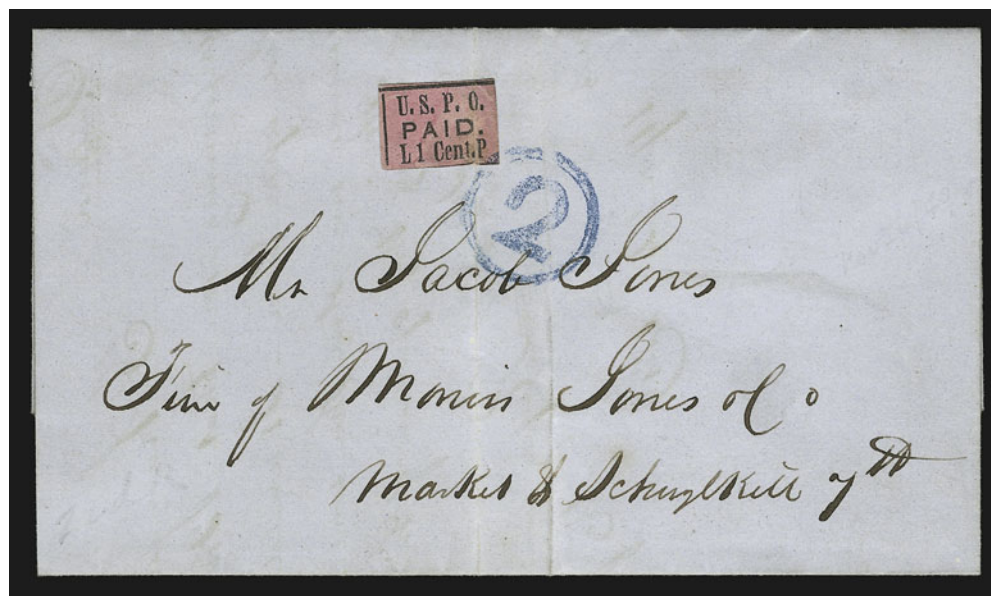 U. S. P. O.
PAID.
L 1 Cent. P
2
Mr Jacob Jones
Firm of Morris Jones & Co
Market & Schuylkill 7th